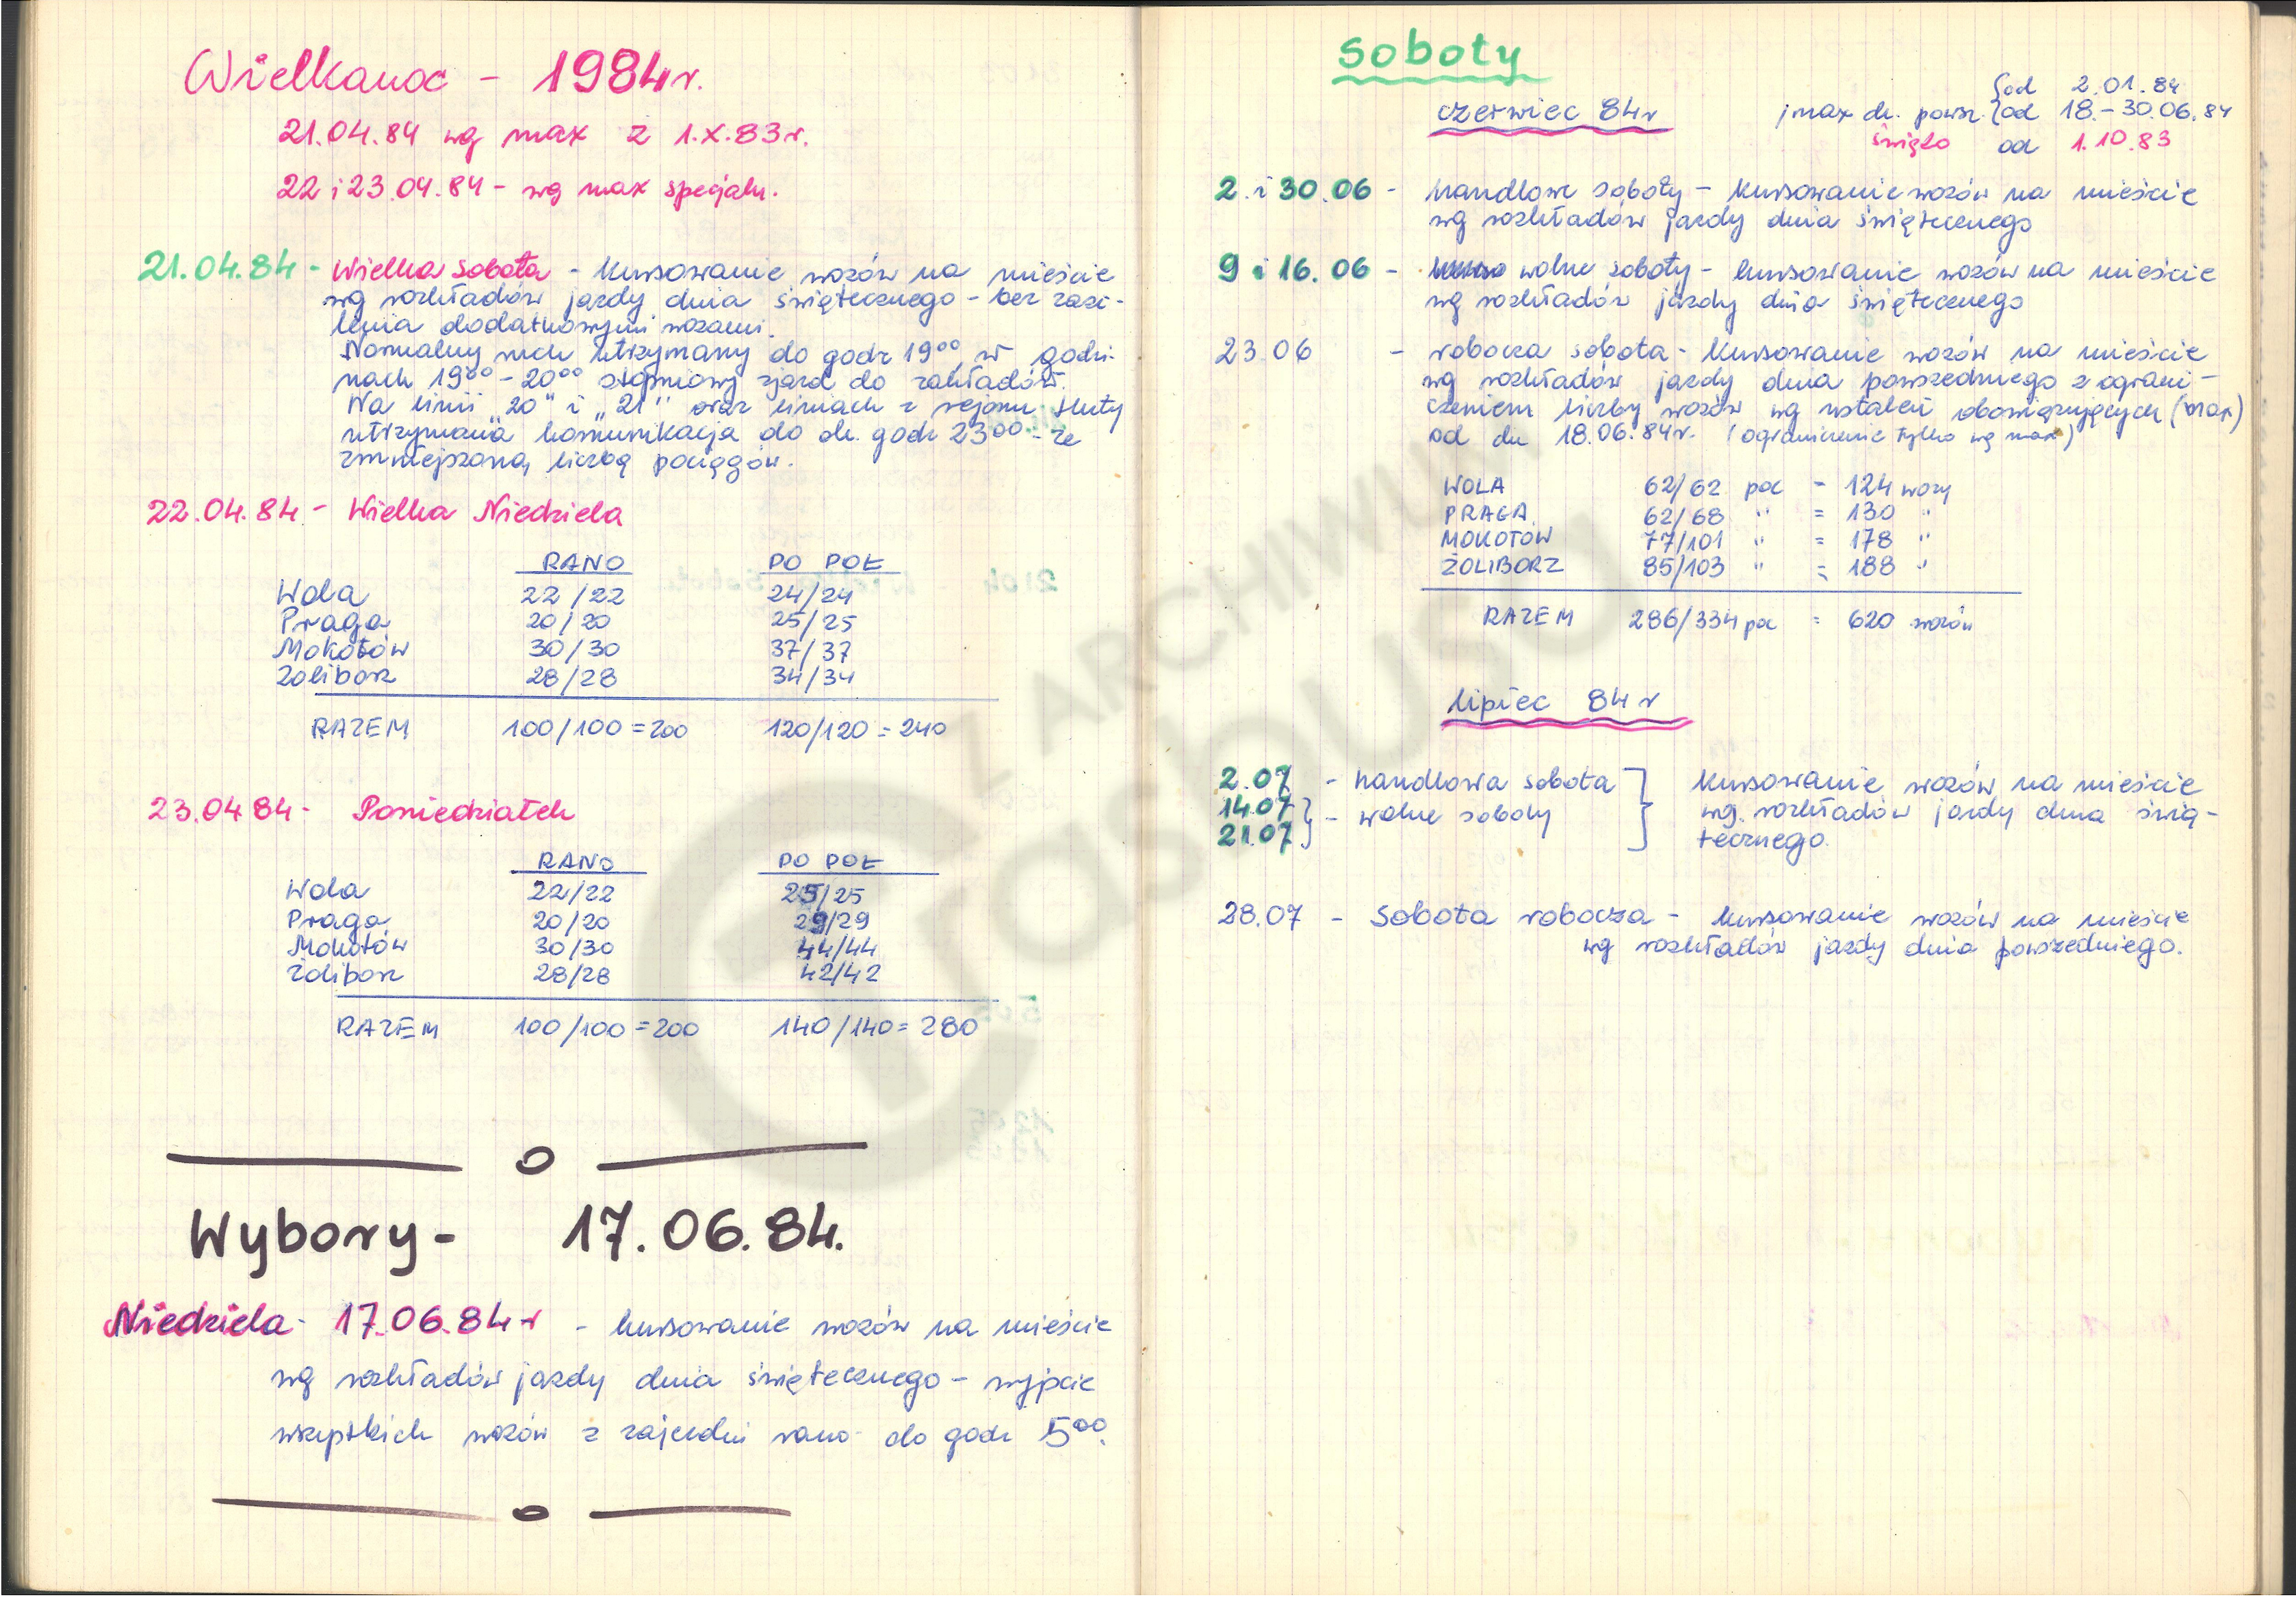 Wielkanoc - 1984 r.
21.04.84 wg max z 1.X.83 r.
22 i 23.04.84 - wg max specjaln.
21.04.84 - Wielka Sobota - kursowanie wozów na mieście
wg rozkładów jazdy dnia świątecznego - bez zasi-
lenia dodatkowymi wozami.
Normalny ruch utrzymany do godz 19⁰⁰, w godzi-
nach 19⁰⁰ - 20⁰⁰ stopniowy zjazd do zakładów.
Na linii „20" i „21" oraz liniach z rejonu Huty
utrzymana komunikacja do ok. godz 23⁰⁰ - ze
zmniejszoną liczbą pociągów.
22.04.84 - Wielka Niedziela
RANO PO POŁ
Wola 22/22 24/24
Praga 20/20 25/25
Mokotów 30/30 37/37
Żoliborz 28/28 34/34
RAZEM 100/100 = 200 120/120 = 240
23.04 84 - Poniedziałek
RANO PO POŁ
Wola 22/22 25/25
Praga 20/20 29/29
Mokotów 30/30 44/44
Żoliborz 28/28 42/42
RAZEM 100/100 = 200 140/140 = 280
Wybory - 17.06.84.
Niedziela - 17.06.84 r - kursowanie wozów na mieście
wg rozkładów jazdy dnia świątecznego - wyjście
wszystkich wozów z zajezdni rano do godz 5⁰⁰.
Soboty
czerwiec 84 r
max dn. powsz. { od 2.01.84
od 18.-30.06.84
święto od 1.10.83
2. i 30.06 - handlowe soboty - kursowanie wozów na mieście
wg rozkładów jazdy dnia świątecznego
9 i 16.06 - wolne soboty - kursowanie wozów na mieście
wg rozkładów jazdy dnia świątecznego
23.06 - robocza sobota - kursowanie wozów na mieście
wg rozkładów jazdy dnia powszedniego z ograni-
czeniem liczby wozów wg ustaleń obowiązujących (max)
od dn 18.06.84 r. (ograniczenie tylko wg max)
WOLA 62/62 poc - 124 wozy
PRAGA 62/68 " = 130 "
MOKOTÓW 77/101 " = 178 "
ŻOLIBORZ 85/103 " = 188 "
RAZEM 286/334 poc = 620 wozów
lipiec 84 r
2.07 - handlowa sobota } kursowanie wozów na mieście
14.07 } - wolne soboty wg. rozkładów jazdy dnia świą-
21.07 } tecznego.
28.07 - Sobota robocza - kursowanie wozów na mieście
wg rozkładów jazdy dnia powszedniego.
Z ARCHIWUM
Trasbusu